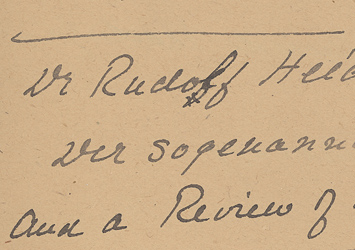 Dr Rudolf Heid
Der sogenann
and a Review of